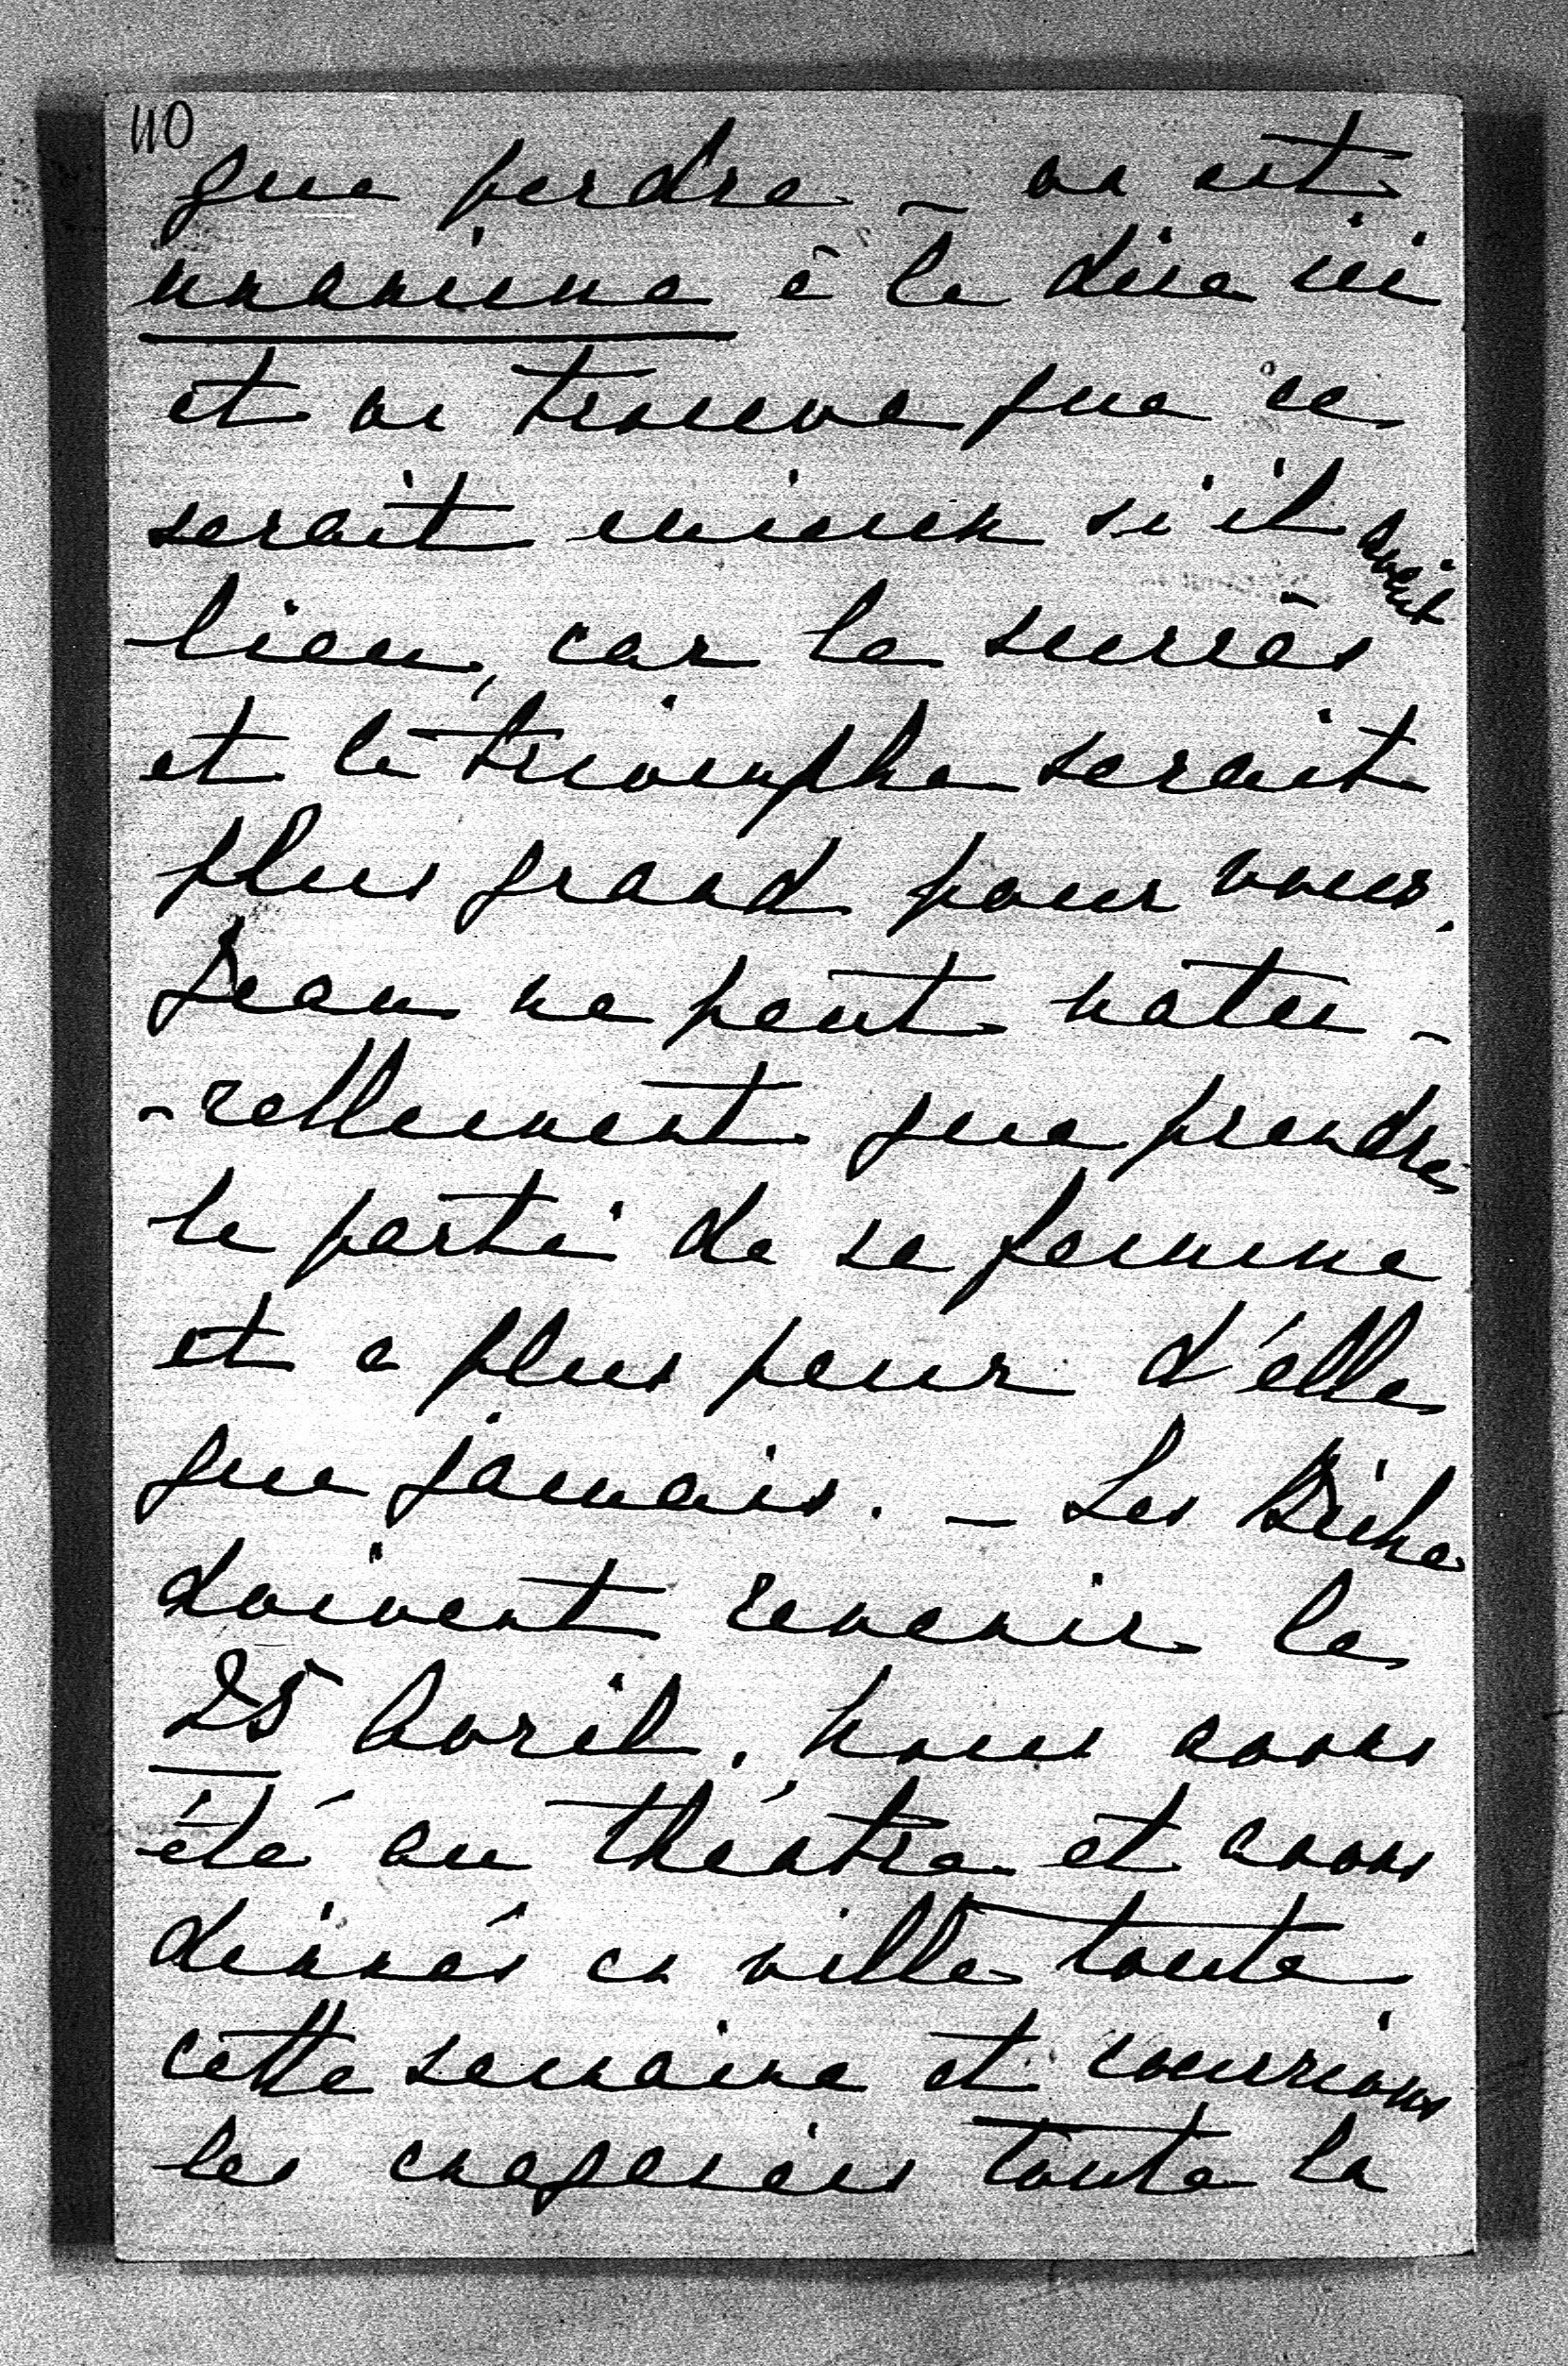 110
que perdre – on est
unanime à le dire ici
et on trouve que ce
serait mieux si il avait
lieu, car le succès
et le triomphe serait
plus grand pour vous.
Jean ne peut natu-
-rellement que prendre
le parti de sa femme
et a plus peur d'elle
que jamais. – Les
doivent revenir le
25 Avril. Nous avons
été au théâtre et avons
dinnés en ville toute
cette semaine et courrions
les magasins toute la